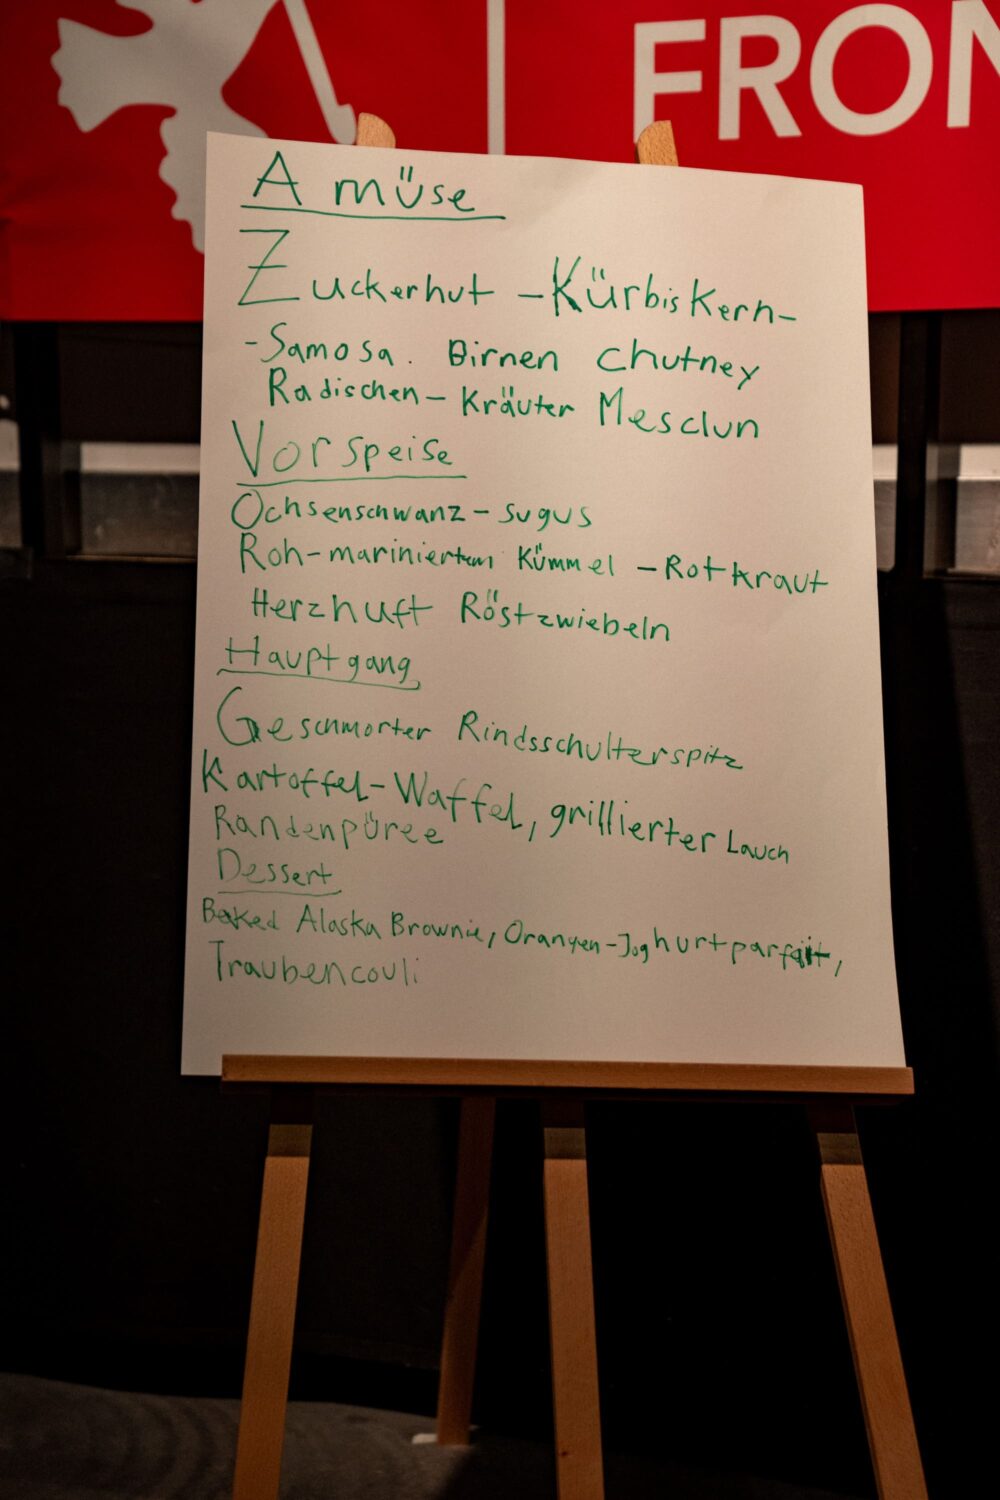 FRON
Amüse
Zuckerhut - Kürbiskern-
-Samosa. Birnen Chutney
Radischen - Kräuter Mesclun
Vorspeise
Ochsenschwanz - sugus
Roh-mariniertem Kümmel - Rotkraut
Herzhuft Röstzwiebeln
Hauptgang
Geschmorter Rindsschulterspitz
Kartoffel-Waffel, grillierter Lauch
Randenpüree
Dessert
Baked Alaska Brownie, Orangen-Joghurtparfait,
Traubencouli